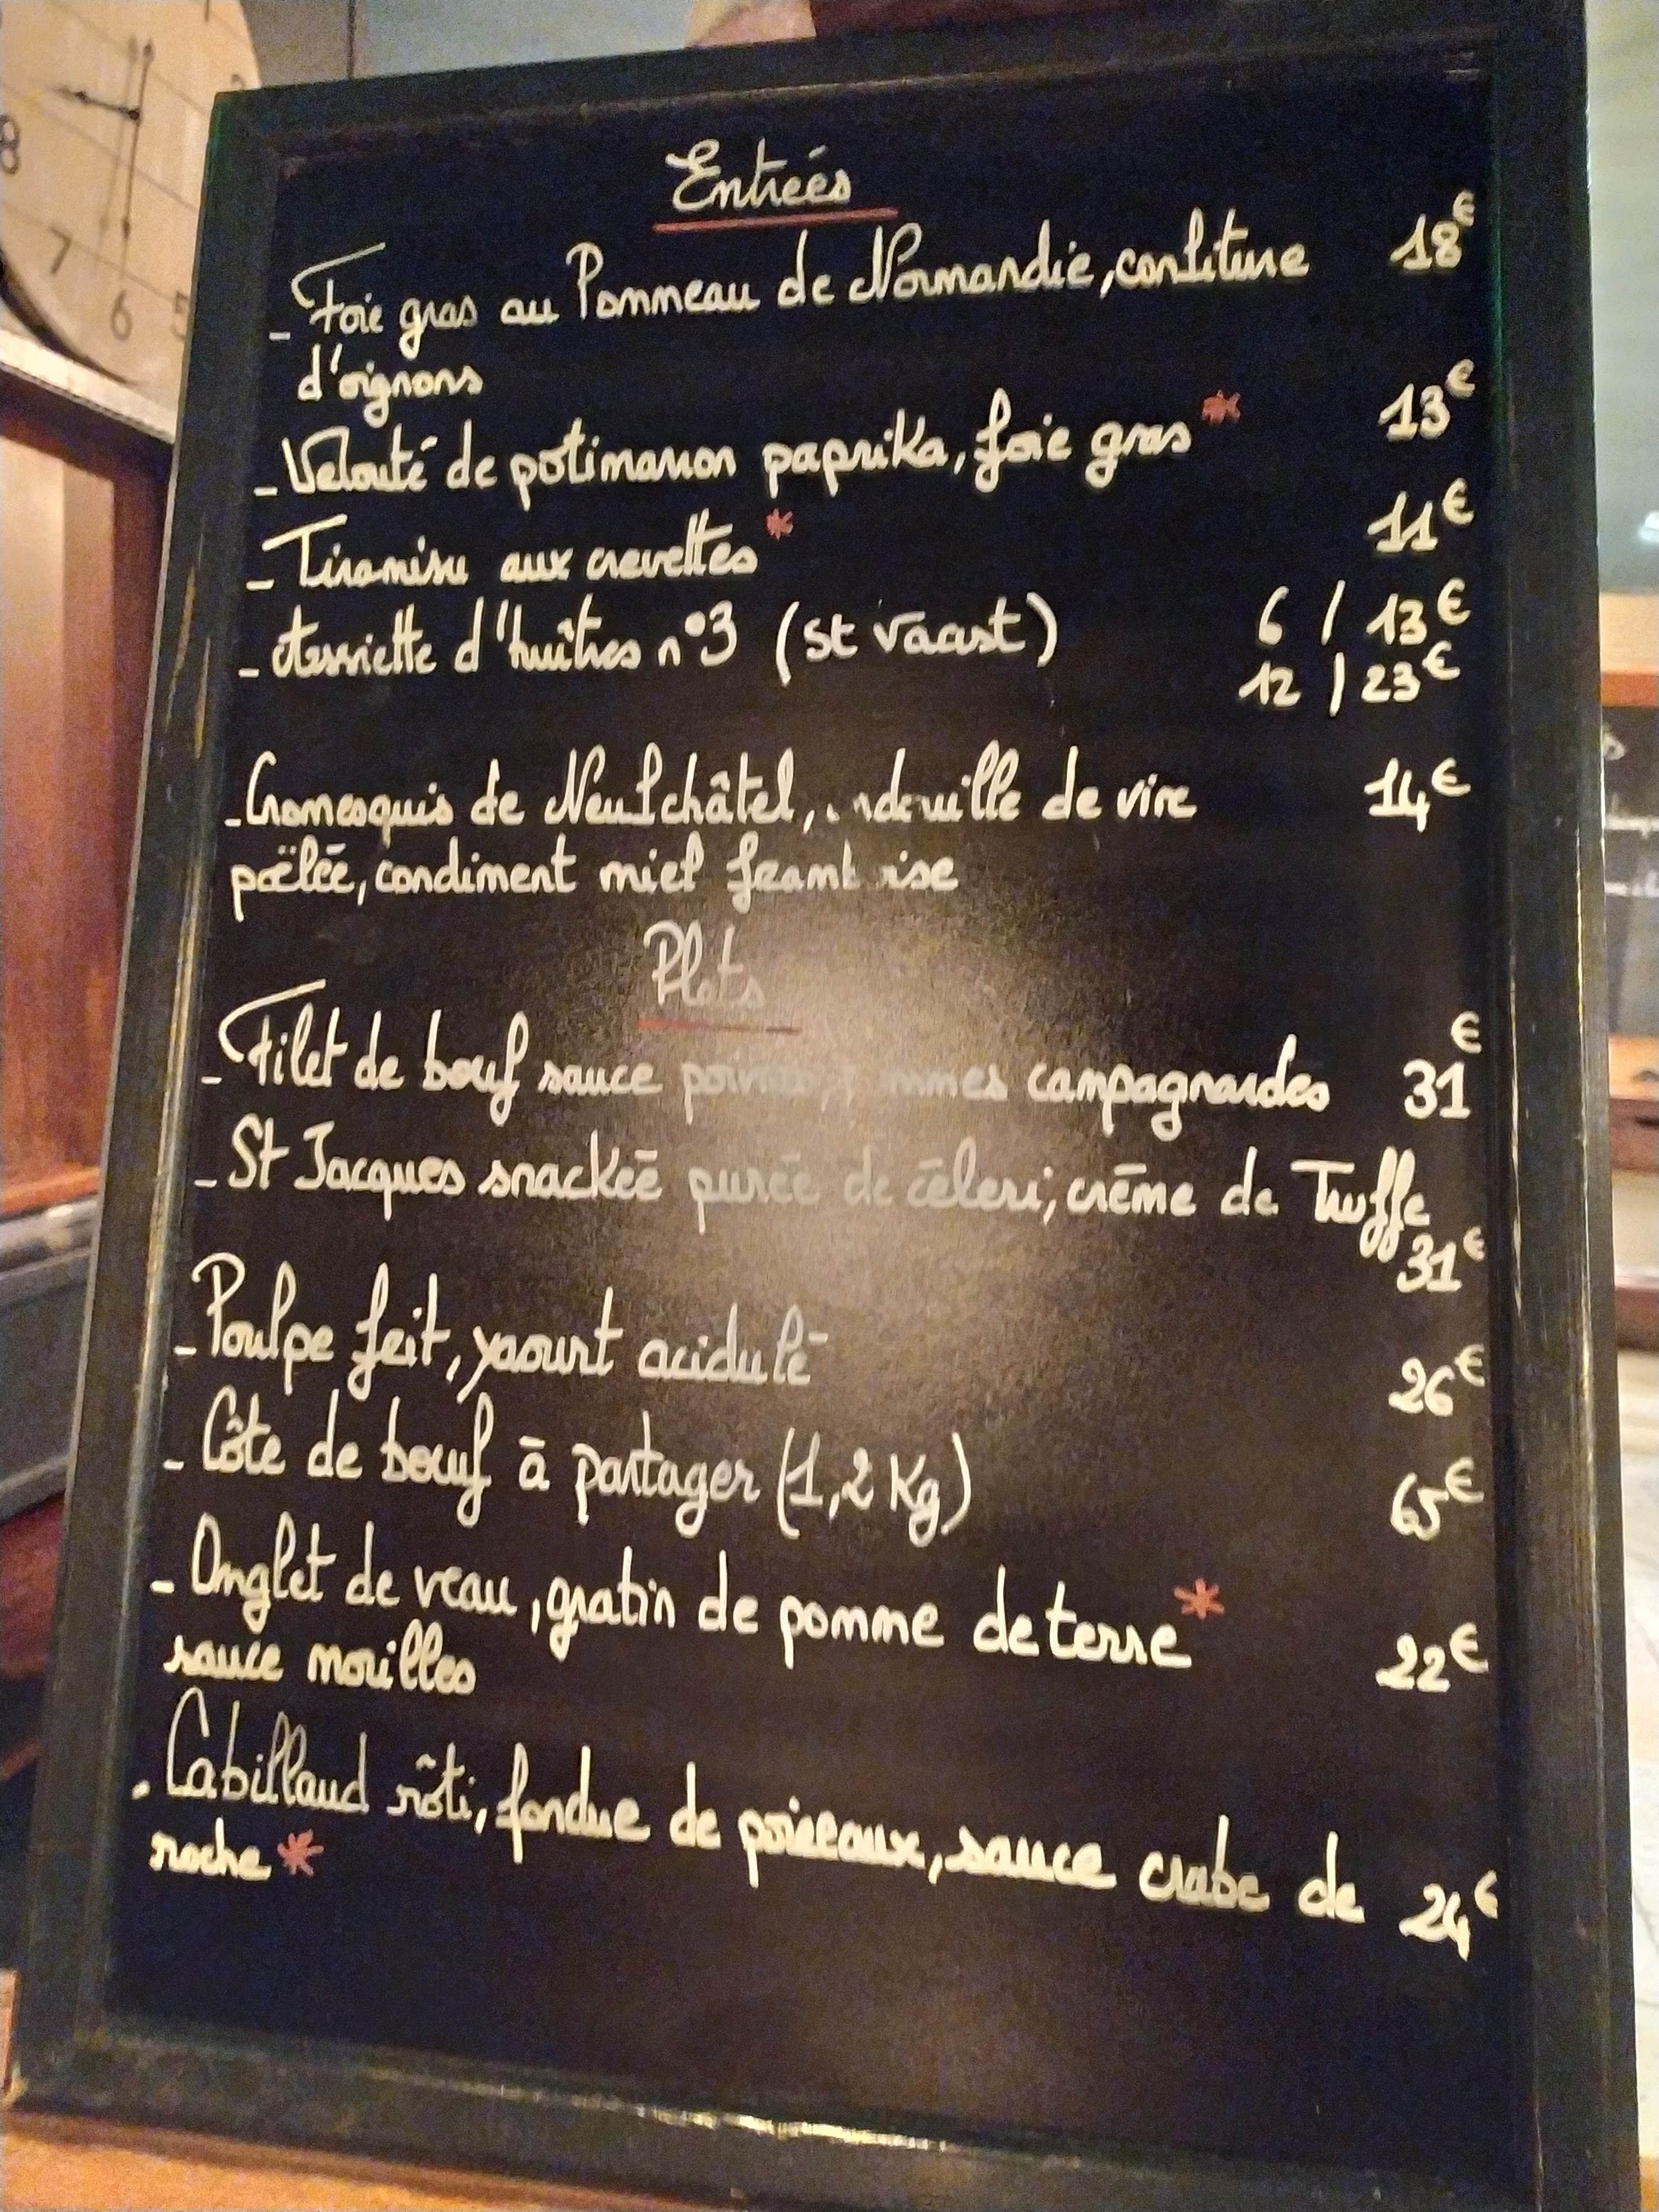 8
7
6
5
Entrées
- Foie gras au Pommeau de Normandie, confiture 18€
d'oignons
- Velouté de potimarron paprika, foie gras* 13€
- Tiramisu aux crevettes* 11€
- Assiette d'huîtres n°3 (St Vaast) 6 / 13€
12 / 23€
- Cromesquis de Neufchâtel, andouille de vire 14€
poëlée, condiment miel framboise
Plats
- Filet de bœuf sauce poivre, pommes campagnardes 31€
- St Jacques snackée purée de céleri, crème de Truffe
31€
- Poulpe frit, yaourt acidulé
26€
- Côte de bœuf à partager (1,2 Kg) 65€
- Onglet de veau, gratin de pomme de terre* 22€
sauce morilles
- Cabillaud rôti, fondue de poireaux, sauce crabe de 24€
roche*